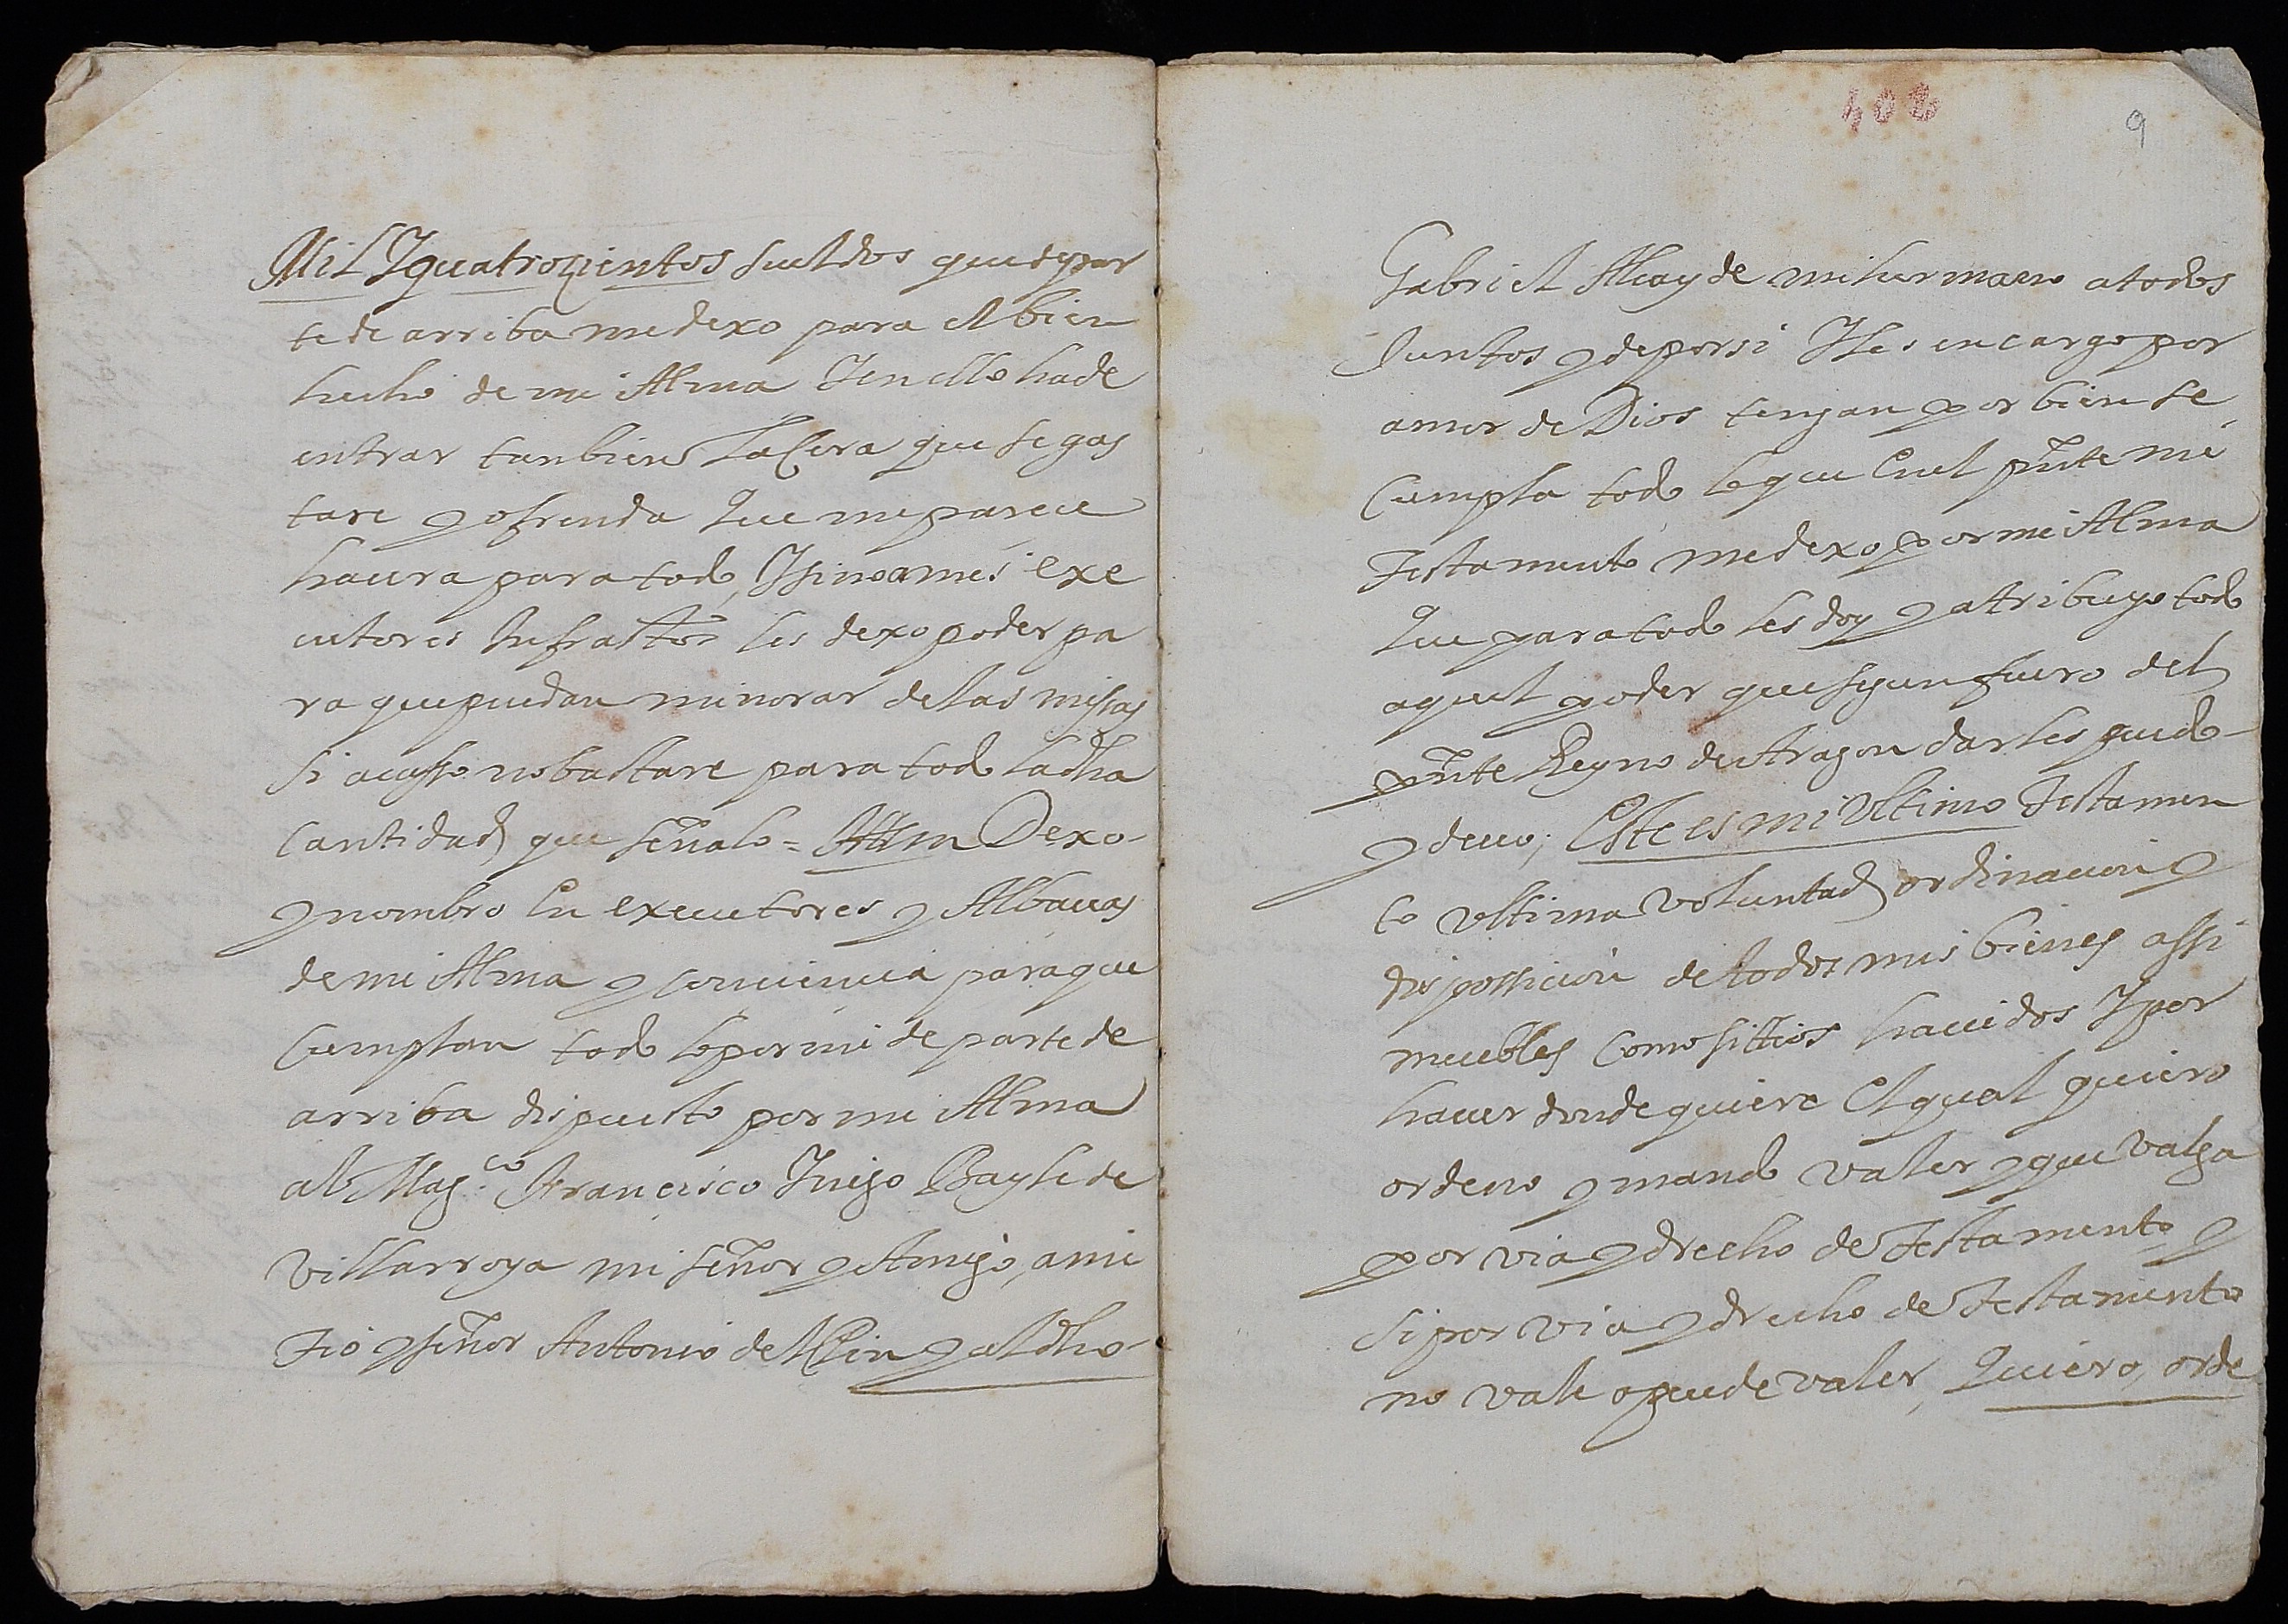 Mil Yquatrozientos sueldos que de par
te de arriba me dexo para el bien
hecho de mi Alma Yen ello ha de
entrar tanbien La Cera que se gas
tare y ofrenda que me parece
havra para todo, Ysino a mis exe
cutores Infrattos les dexo poder pa
ra que puedan minorar de las missas
si acasso no bastare para todo la dha
Cantidad que señalo = Ittem Dexo
y nombro En executores y Albaceas
de mi Alma y conciencia para que
Cumplan todo lo por mi de parte de
arriba dispuesto por mi Alma
al Mag.co Francisco Yñigo Bayle de
Villarroya mi señor y Amigo, a mi
Tio y señor Antonio de y al dho
408
9
Gabriel Alcayde mi hermano a todos
Juntos y de por si Yles encargo por
amor de Dios tengan por bien se
Cumpla todo lo que En el pnte mi
Testamento me dexo por mi Alma
que para todo les doy y atribuyo todo
aquel poder que segun fuero del
pnte Reyno de Aragon darles puedo
y devo; Este es mi Ultimo Testamen
to ultima voluntad ordinacion y
dispossicion de todos mis bienes assi
muebles Como sittios havidos Ypor
haver donde quiere El qual quiero
ordeno y mando valer y que valga
por via y drecho de Testamento y
si por via y drecho de Testamento
no vale o puede valer, Quiero, orde